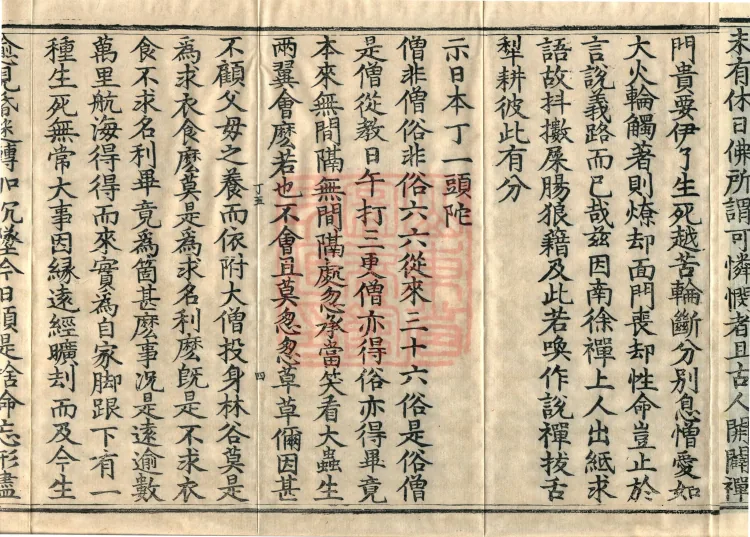 未有休日佛所謂可憐憫者且古人開闢禪
門貴要伊了生死越苦輪斷分別息憎愛如
大火輪觸著則燎却面門喪却性命豈止於
言說義路而已哉茲因南徐禪上人出紙求
語故抖擻屎腸狼籍及此若喚作說禪拔舌
犁耕彼此有分
示日本丁一頭陀
僧非僧俗非俗六六從來三十六俗是俗僧
是僧從教日午打三更僧亦得俗亦得畢竟
本來無間隔無間隔處忽承當笑看大蟲生
兩翼會麼若也不會且莫忽忽草草儞因甚
丁五
四
不顧父母之養而依附大僧投身林谷莫是
為求衣食麼莫是為求名利麼既是不求衣
食不求名利畢竟為箇甚麼事況是遠逾數
萬里航海得得而來實為自家脚跟下有一
種生死無常大事因緣遠經曠刦而及今生
愈見昏迷轉加沉墜今日須是捨命忘形盡